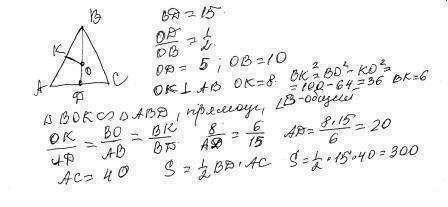 B
K
O
A
D
C
BD = 15.
OD/OB = 1/2
OD = 5; OB = 10
OK ⊥ AB OK = 8. BK² = BO² - KO² =
= 100 - 64 = 36 BK = 6
△ BOK ∽ △ ABD, прямоуг, ∠B - общий
OK/AD = BO/AB = BK/BD 8/AD = 6/15 AD = 8·15/6 = 20
AC = 40 S = 1/2 BD · AC S = 1/2 · 15 · 40 = 300